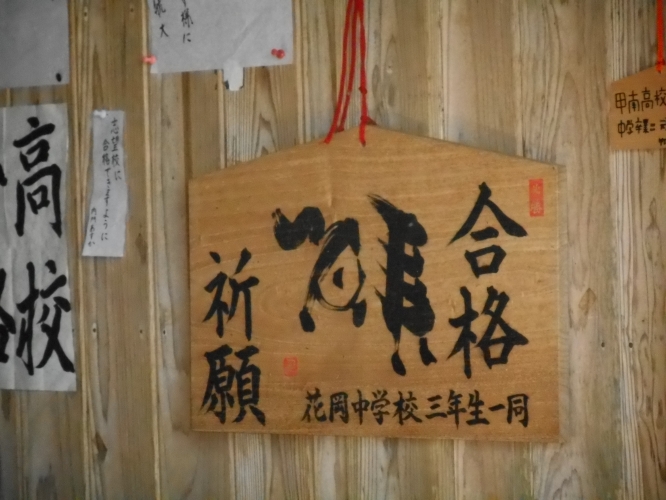 合格
祈願
花岡中学校三年生一同
高
校
志望校に
合格できますように
甲南高校
様に